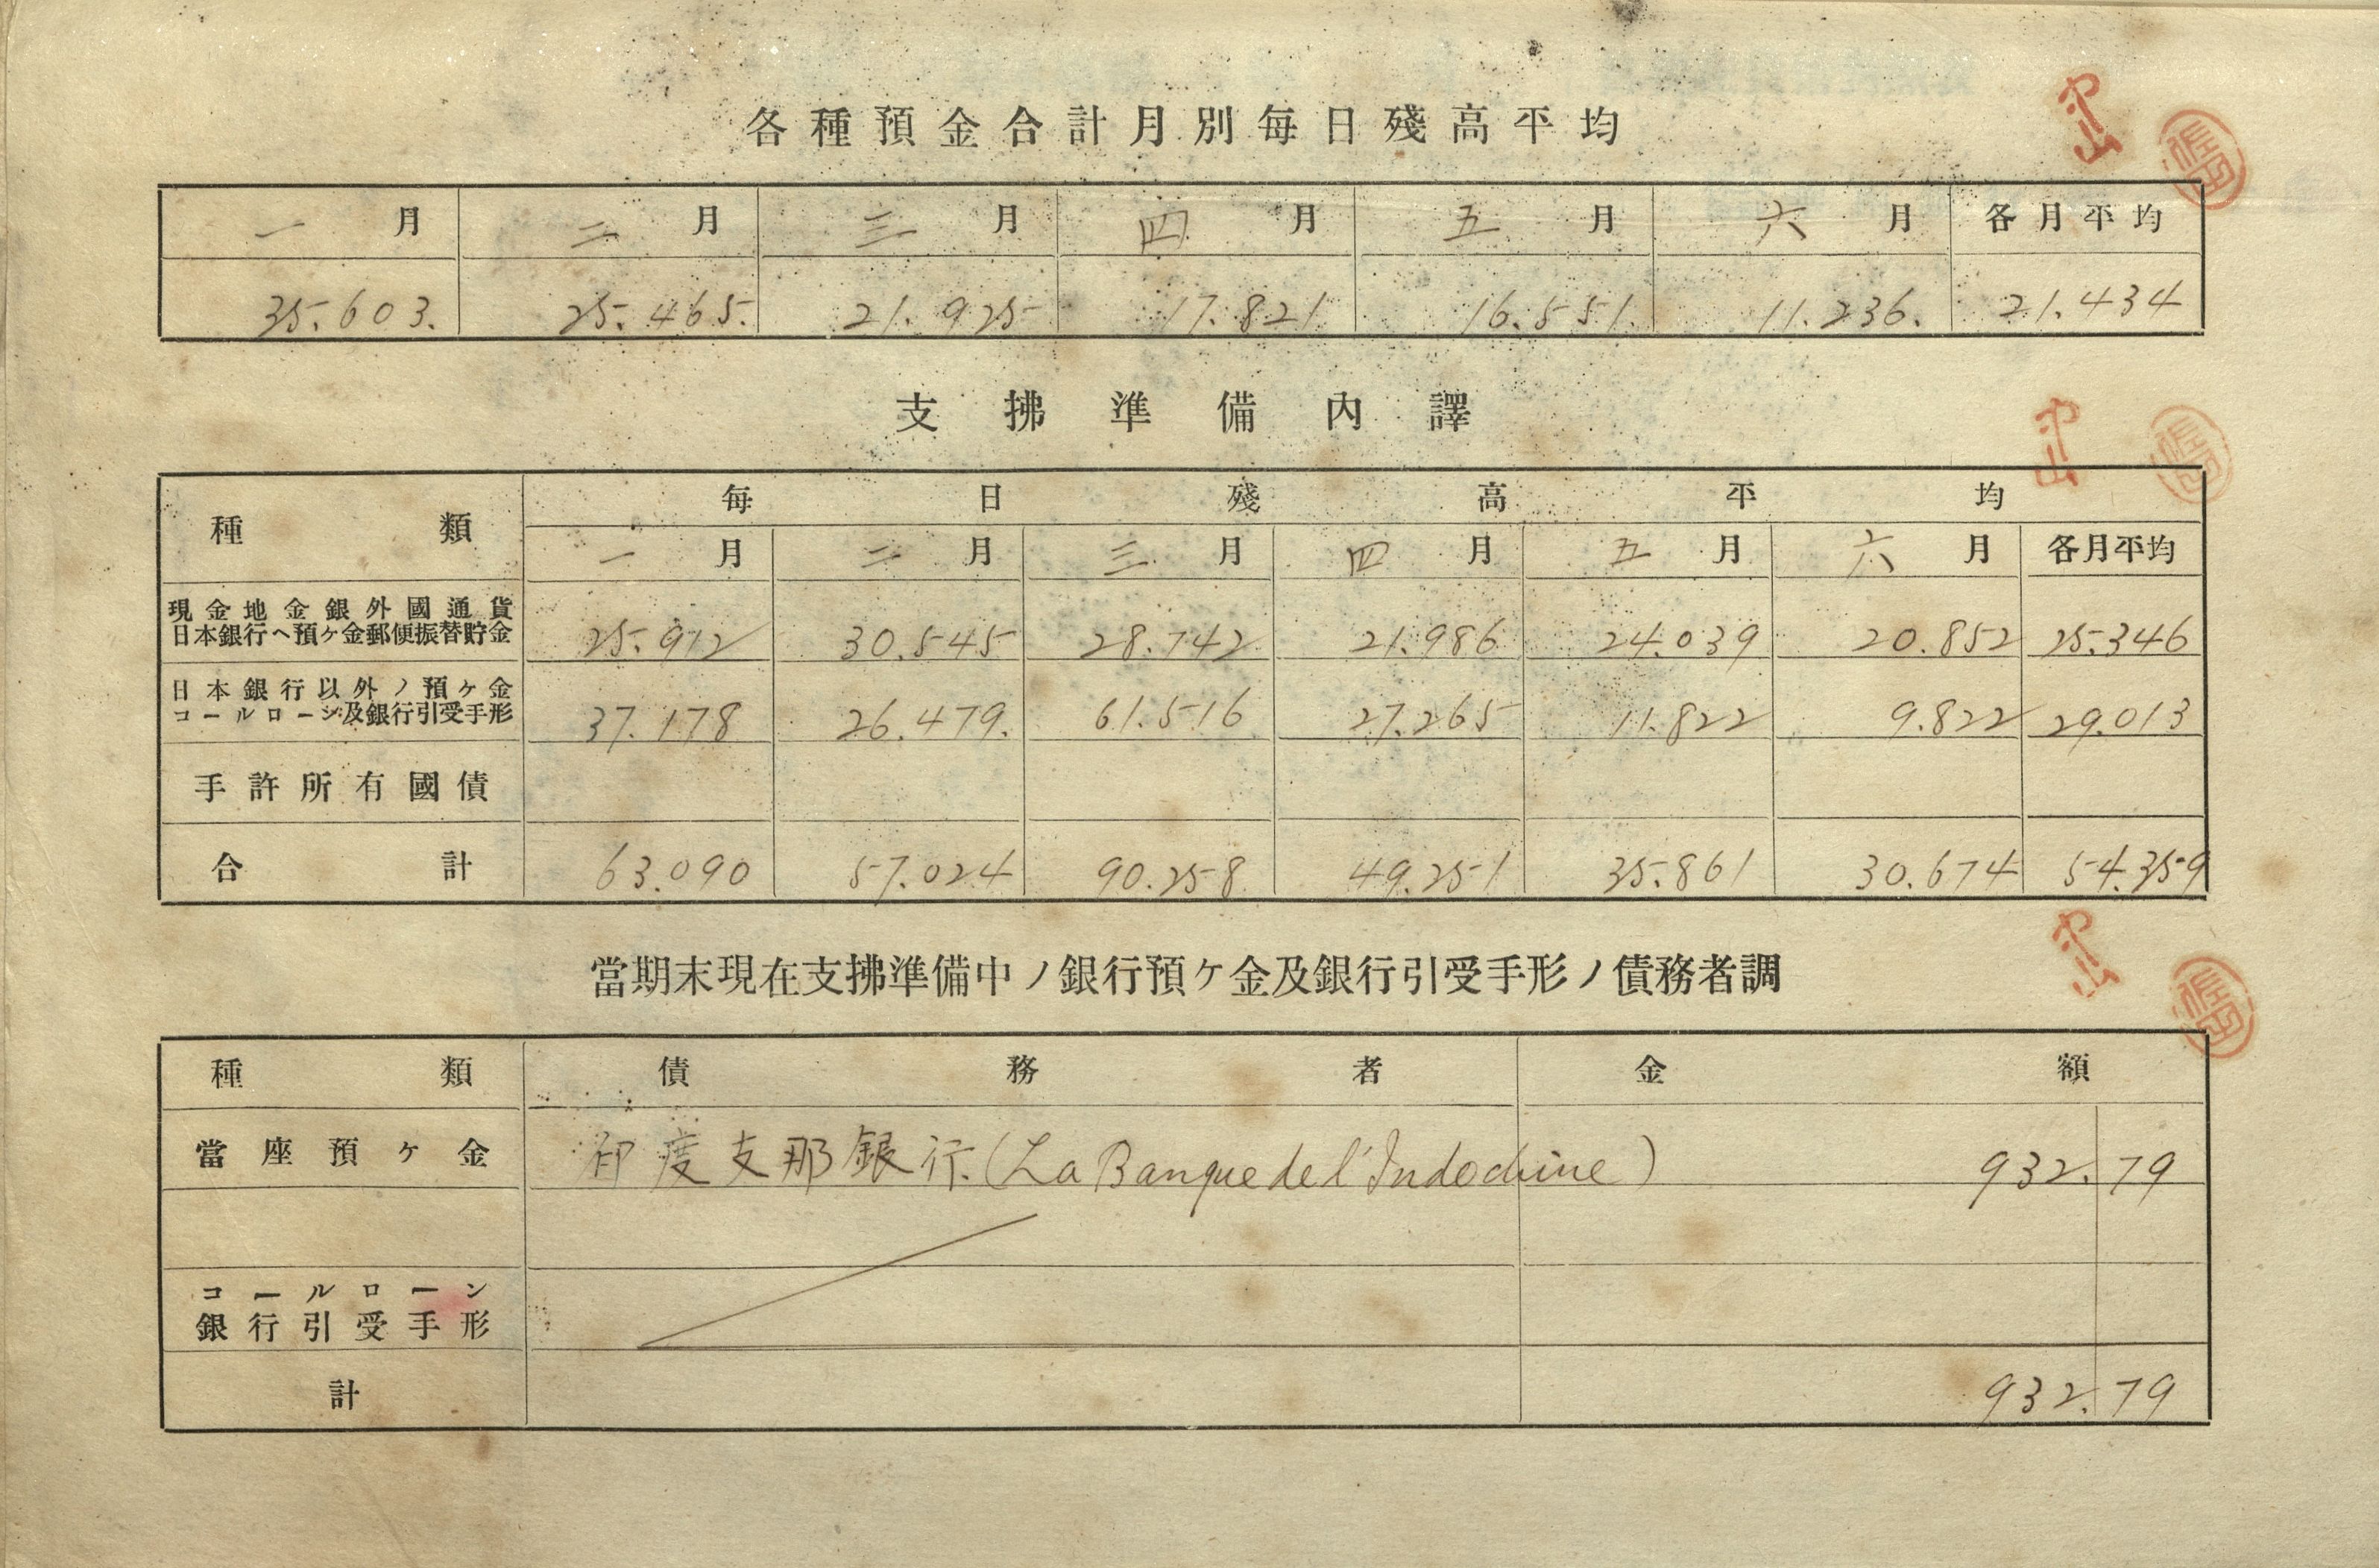 各種預金合計月別毎日殘高平均
一月 二月 三月 四月 五月 六月 各月平均
35.603. 25.465. 21.925 17.821 16.551. 11.236. 21.434
支拂準備內譯
種類 毎日殘高平均
一月 二月 三月 四月 五月 六月 各月平均
現金地金銀外國通貨
日本銀行ヘ預ケ金郵便振替貯金 25.912 30.545 28.742 21.986 24.039 20.852 25.346
日本銀行以外ノ預ケ金
コールローン及銀行引受手形 37.178 26.479. 61.516 27.265 11.822 9.822 29.013
手許所有國債
合計 63.090 57.024 90.258 49.251 35.861 30.674 54.359
當期末現在支拂準備中ノ銀行預ケ金及銀行引受手形ノ債務者調
種類 債務者 金額
當座預ケ金 印度支那銀行.(La Banque de l'Indochine) 932.79
コールローン
銀行引受手形
計 932.79